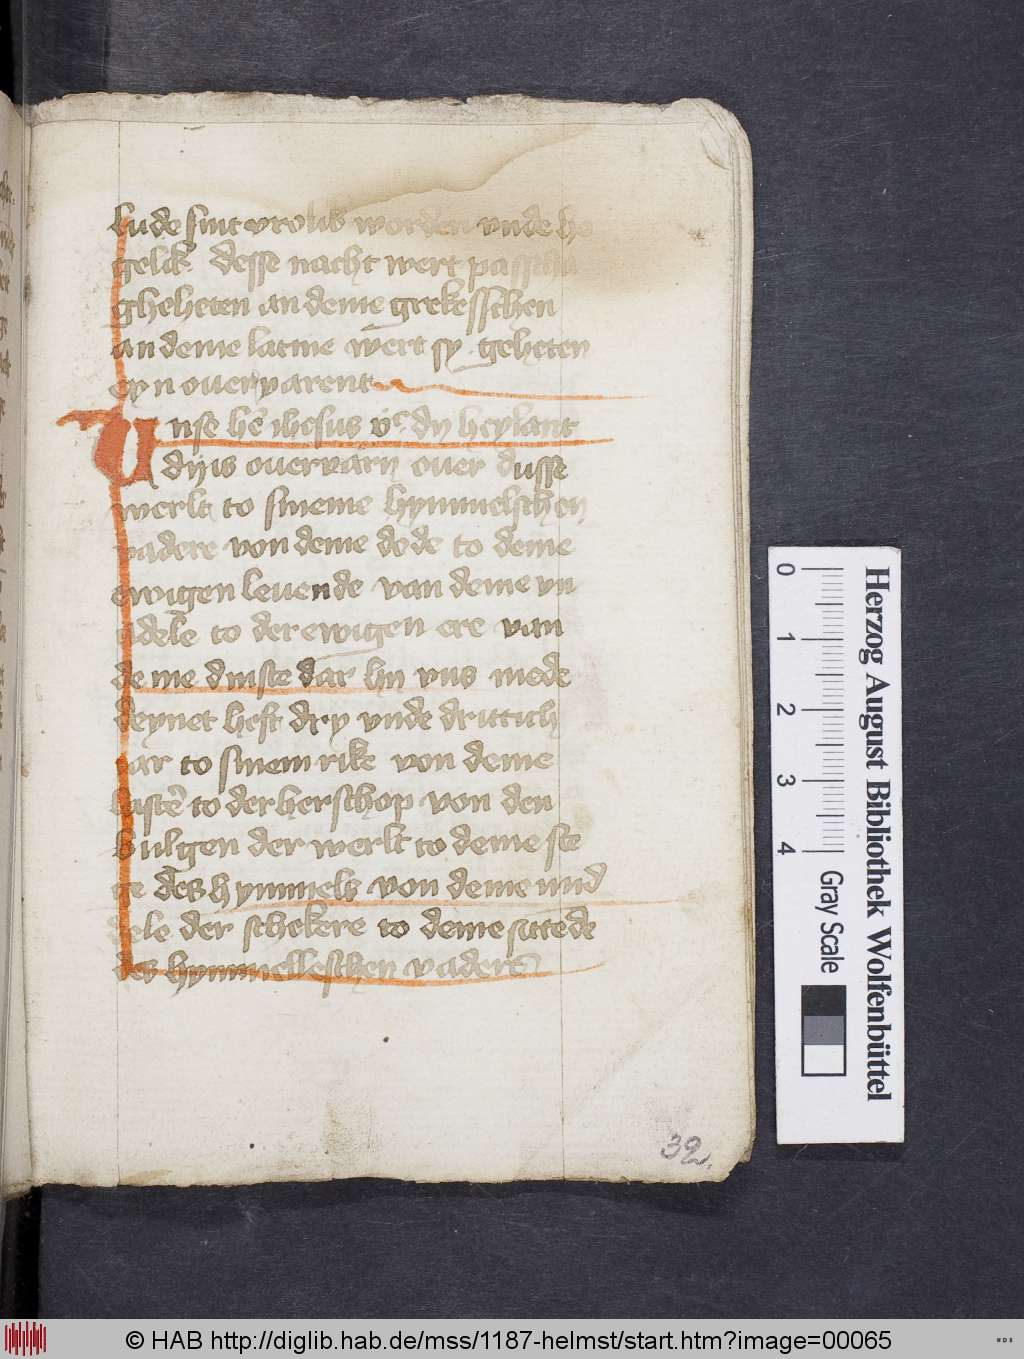 lude sint vrolik worden vnde ho
gelik desse nacht wert passcha
gheheten an deme grekesschen
an deme latine wert sy geheten
eyn ouervarent
Unse hē ihesus vc dy heylant
dy is ouervarn ouer dusse
werlt to sineme hymmelschen
vadere von deme dode to deme
ewigen leuende van deme vn
adele to der ewigen ere van
deme dinste dar hn vns mede
deynet heft dry vnde drittich
iar to sinem rike von deme
lastē to der herschop von den
bulgen der werlt to deme ste
ge des hymmels von deme mid
dele der schekere to deme sittede
des hymmelleschen vaders
32.
Herzog August Bibliothek Wolfenbüttel
0 1 2 3 4
Gray Scale
© HAB http://diglib.hab.de/mss/1187-helmst/start.htm?image=00065